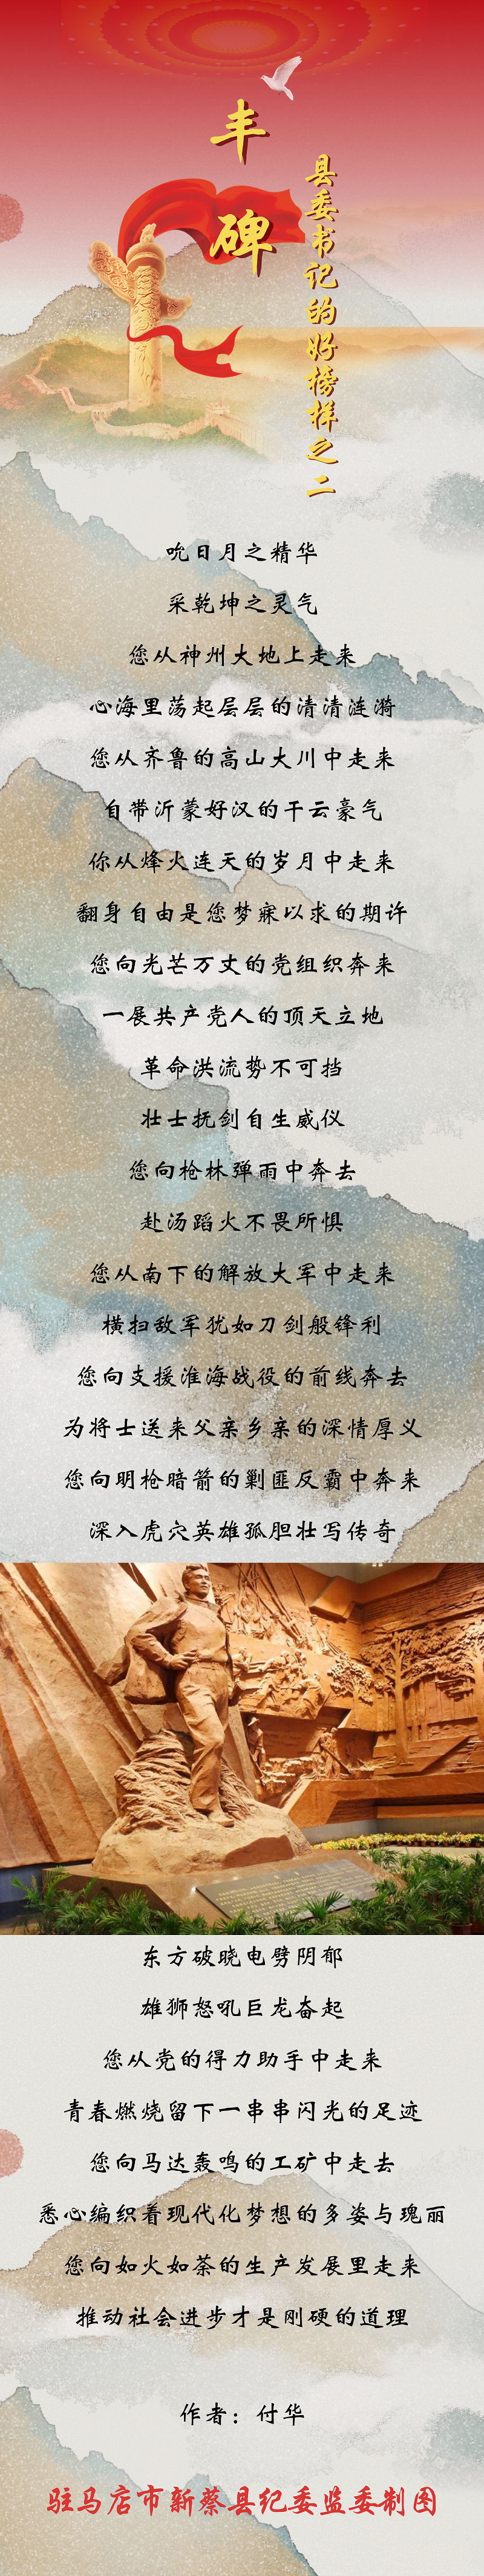 丰碑
县委书记的好榜样之二
吮日月之精华
采乾坤之灵气
您从神州大地上走来
心海里荡起层层的清清涟漪
您从齐鲁的高山大川中走来
自带沂蒙好汉的干云豪气
你从烽火连天的岁月中走来
翻身自由是您梦寐以求的期许
您向光芒万丈的党组织奔来
一展共产党人的顶天立地
革命洪流势不可挡
壮士抚剑自生威仪
您向枪林弹雨中奔去
赴汤蹈火不畏所惧
您从南下的解放大军中走来
横扫敌军犹如刀剑般锋利
您向支援淮海战役的前线奔去
为将士送来父亲乡亲的深情厚义
您向明枪暗箭的剿匪反霸中奔来
深入虎穴英雄孤胆壮写传奇
东方破晓电劈阴郁
雄狮怒吼巨龙奋起
您从党的得力助手中走来
青春燃烧留下一串串闪光的足迹
您向马达轰鸣的工矿中走去
悉心编织着现代化梦想的多姿与瑰丽
您向如火如荼的生产发展里走来
推动社会进步才是刚硬的道理
作者：付华
驻马店市新蔡县纪委监委制图